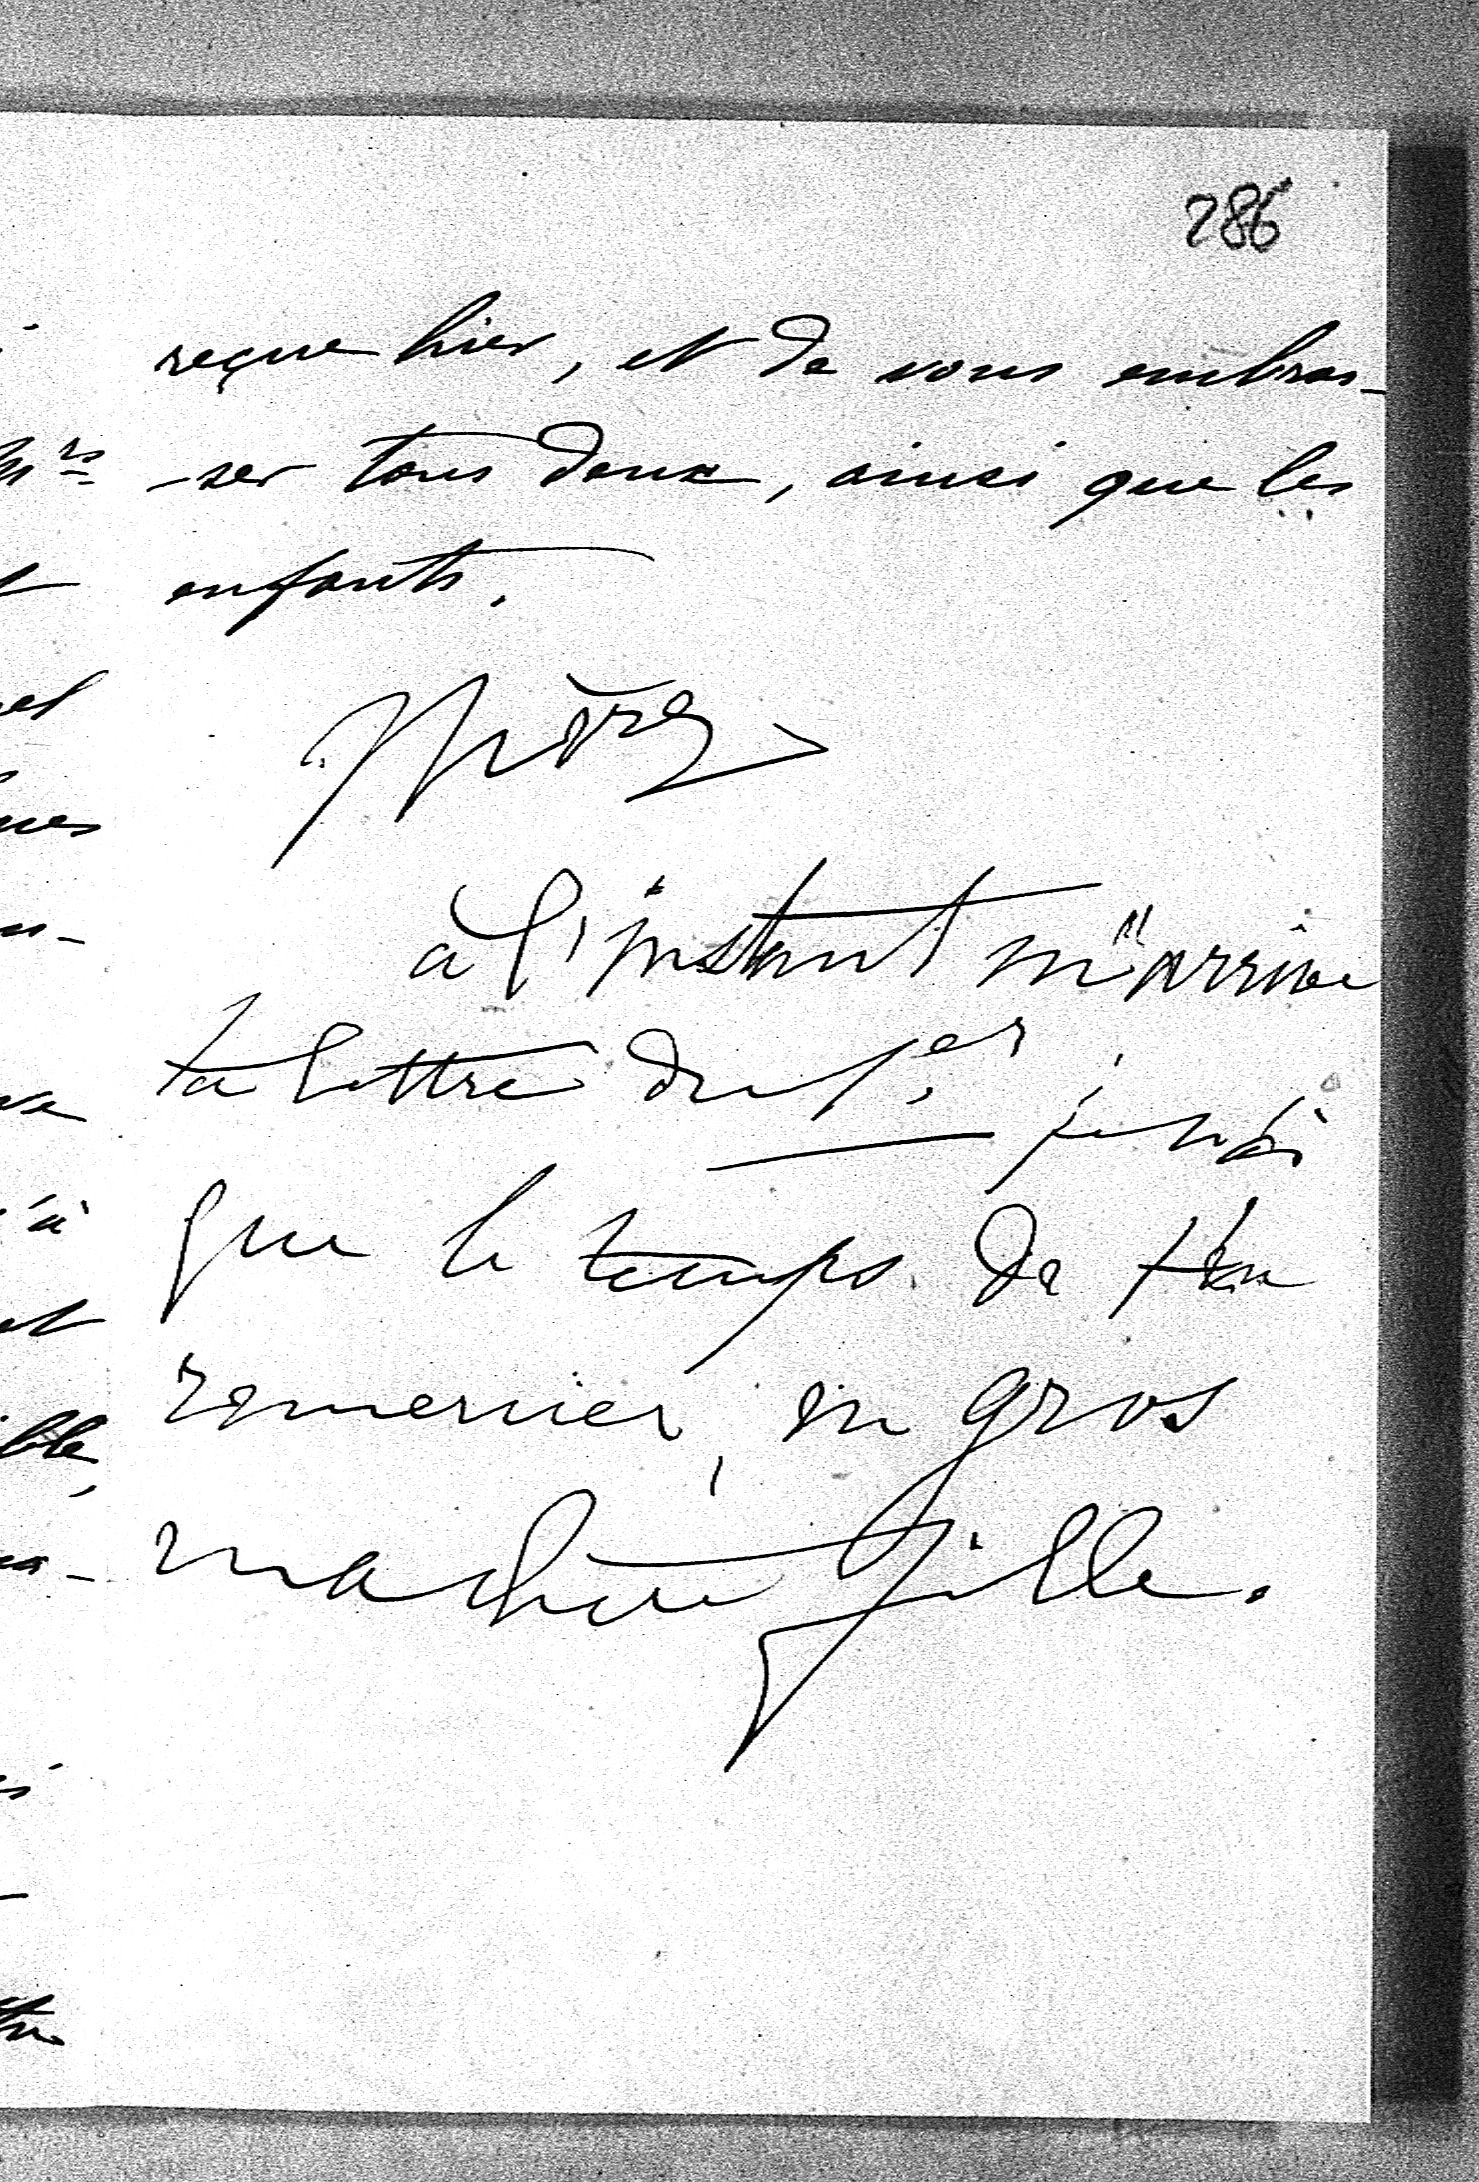 286
reçue hier, et de vous embras-
-ser tous deux, ainsi que les
enfants.
à l'instant m'arrive
ta lettre du 1.er, je n'ai
que le temps de t'en
remercier, en gros
ma chère fille.